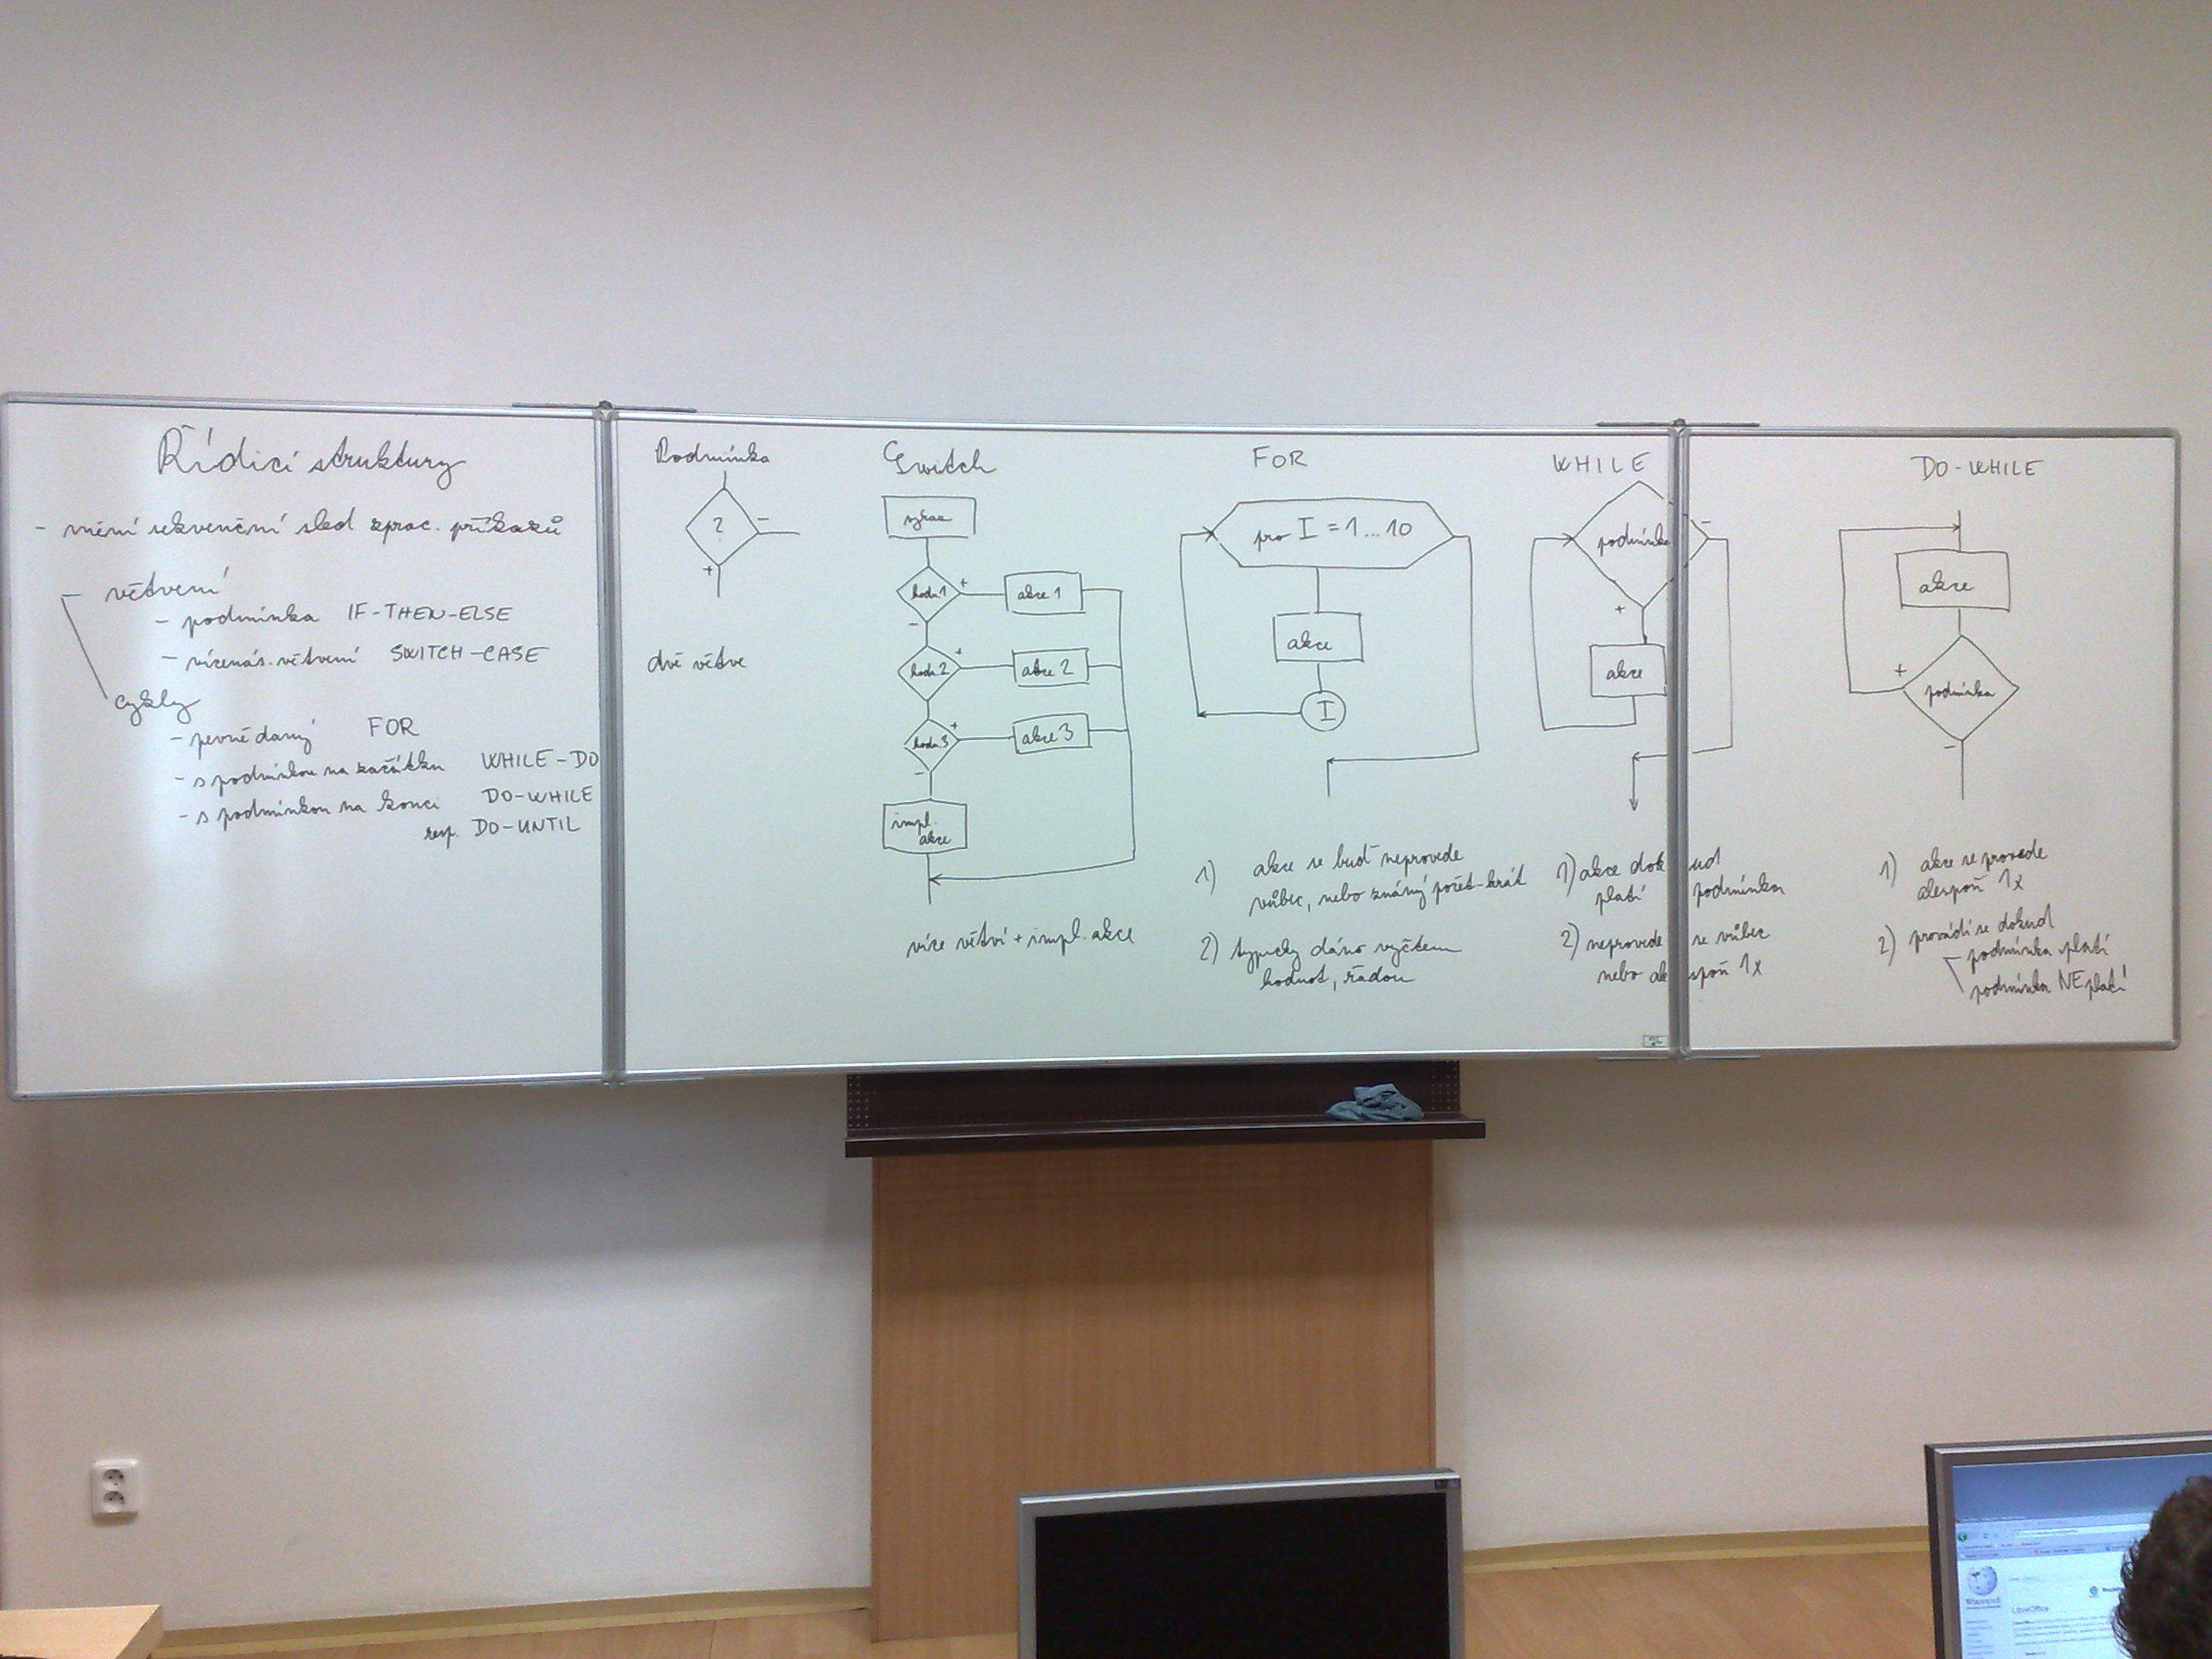 Řídicí struktury
- mění sekvenční sled zprac. příkazů
- větvení
- podmínka IF-THEN-ELSE
- vícenás. větvení SWITCH-CASE
cykly
- pevně daný FOR
- s podmínkou na začátku WHILE-DO
- s podmínkou na konci DO-WHILE
resp. DO-UNTIL
Podmínka
?
-
+
dvě větve
Switch
výraz
hodn.1
+
akce 1
-
hodn.2
+
akce 2
hodn.3
+
akce 3
-
impl.
akce
více větví + impl. akce
FOR
pro I = 1...10
akce
I
1) akce se buď neprovede
vůbec, nebo známý počet-krát
2) typicky dáno výčtem
hodnot, řadou
WHILE
podmínka
-
+
akce
1) akce dokud
platí podmínka
2) neprovede se vůbec
nebo alespoň 1x
DO-WHILE
akce
+
podmínka
-
1) akce se provede
alespoň 1x
2) provádí se dokud
- podmínka platí
podmínka NEplatí
LibreOffice